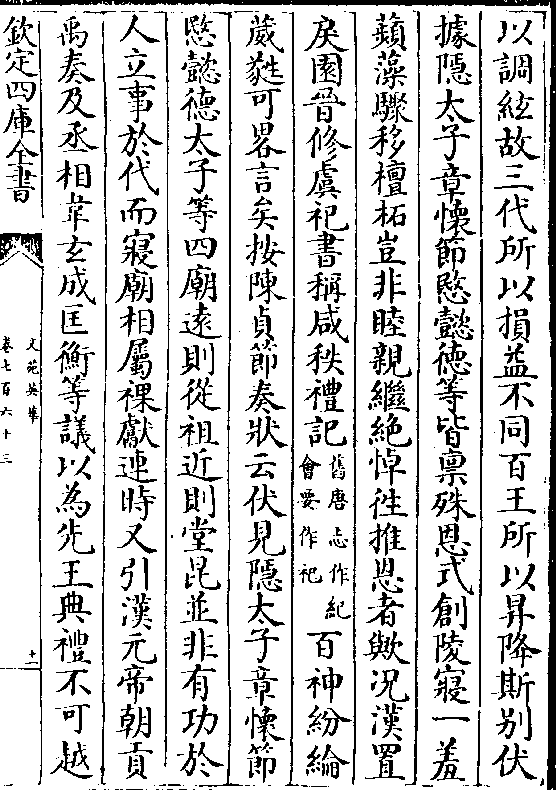 以調絃故三代所以損益不同百王所以昇降斯别伏
據隠太子章懷節愍懿德等皆禀殊恩式創陵寢一羞
蘋藻驟移檀柘豈非睦親繼絶悼徃推恩者歟况漢置
戾園晉修虞祀書稱咸秩禮記舊唐志作紀會要作祀百神紛綸
葳蕤可畧言矣按陳貞節奏狀云伏見隠太子章懷節
愍懿德太子等四廟逺則從祖近則堂昆並非有功於
人立事於代而寢廟相屬祼獻連時又引漢元帝朝貢
禹奏及丞相韋玄成匡衡等議以為先王典禮不可越
欽定四庫全書
文苑英華
卷七百六十三
十二